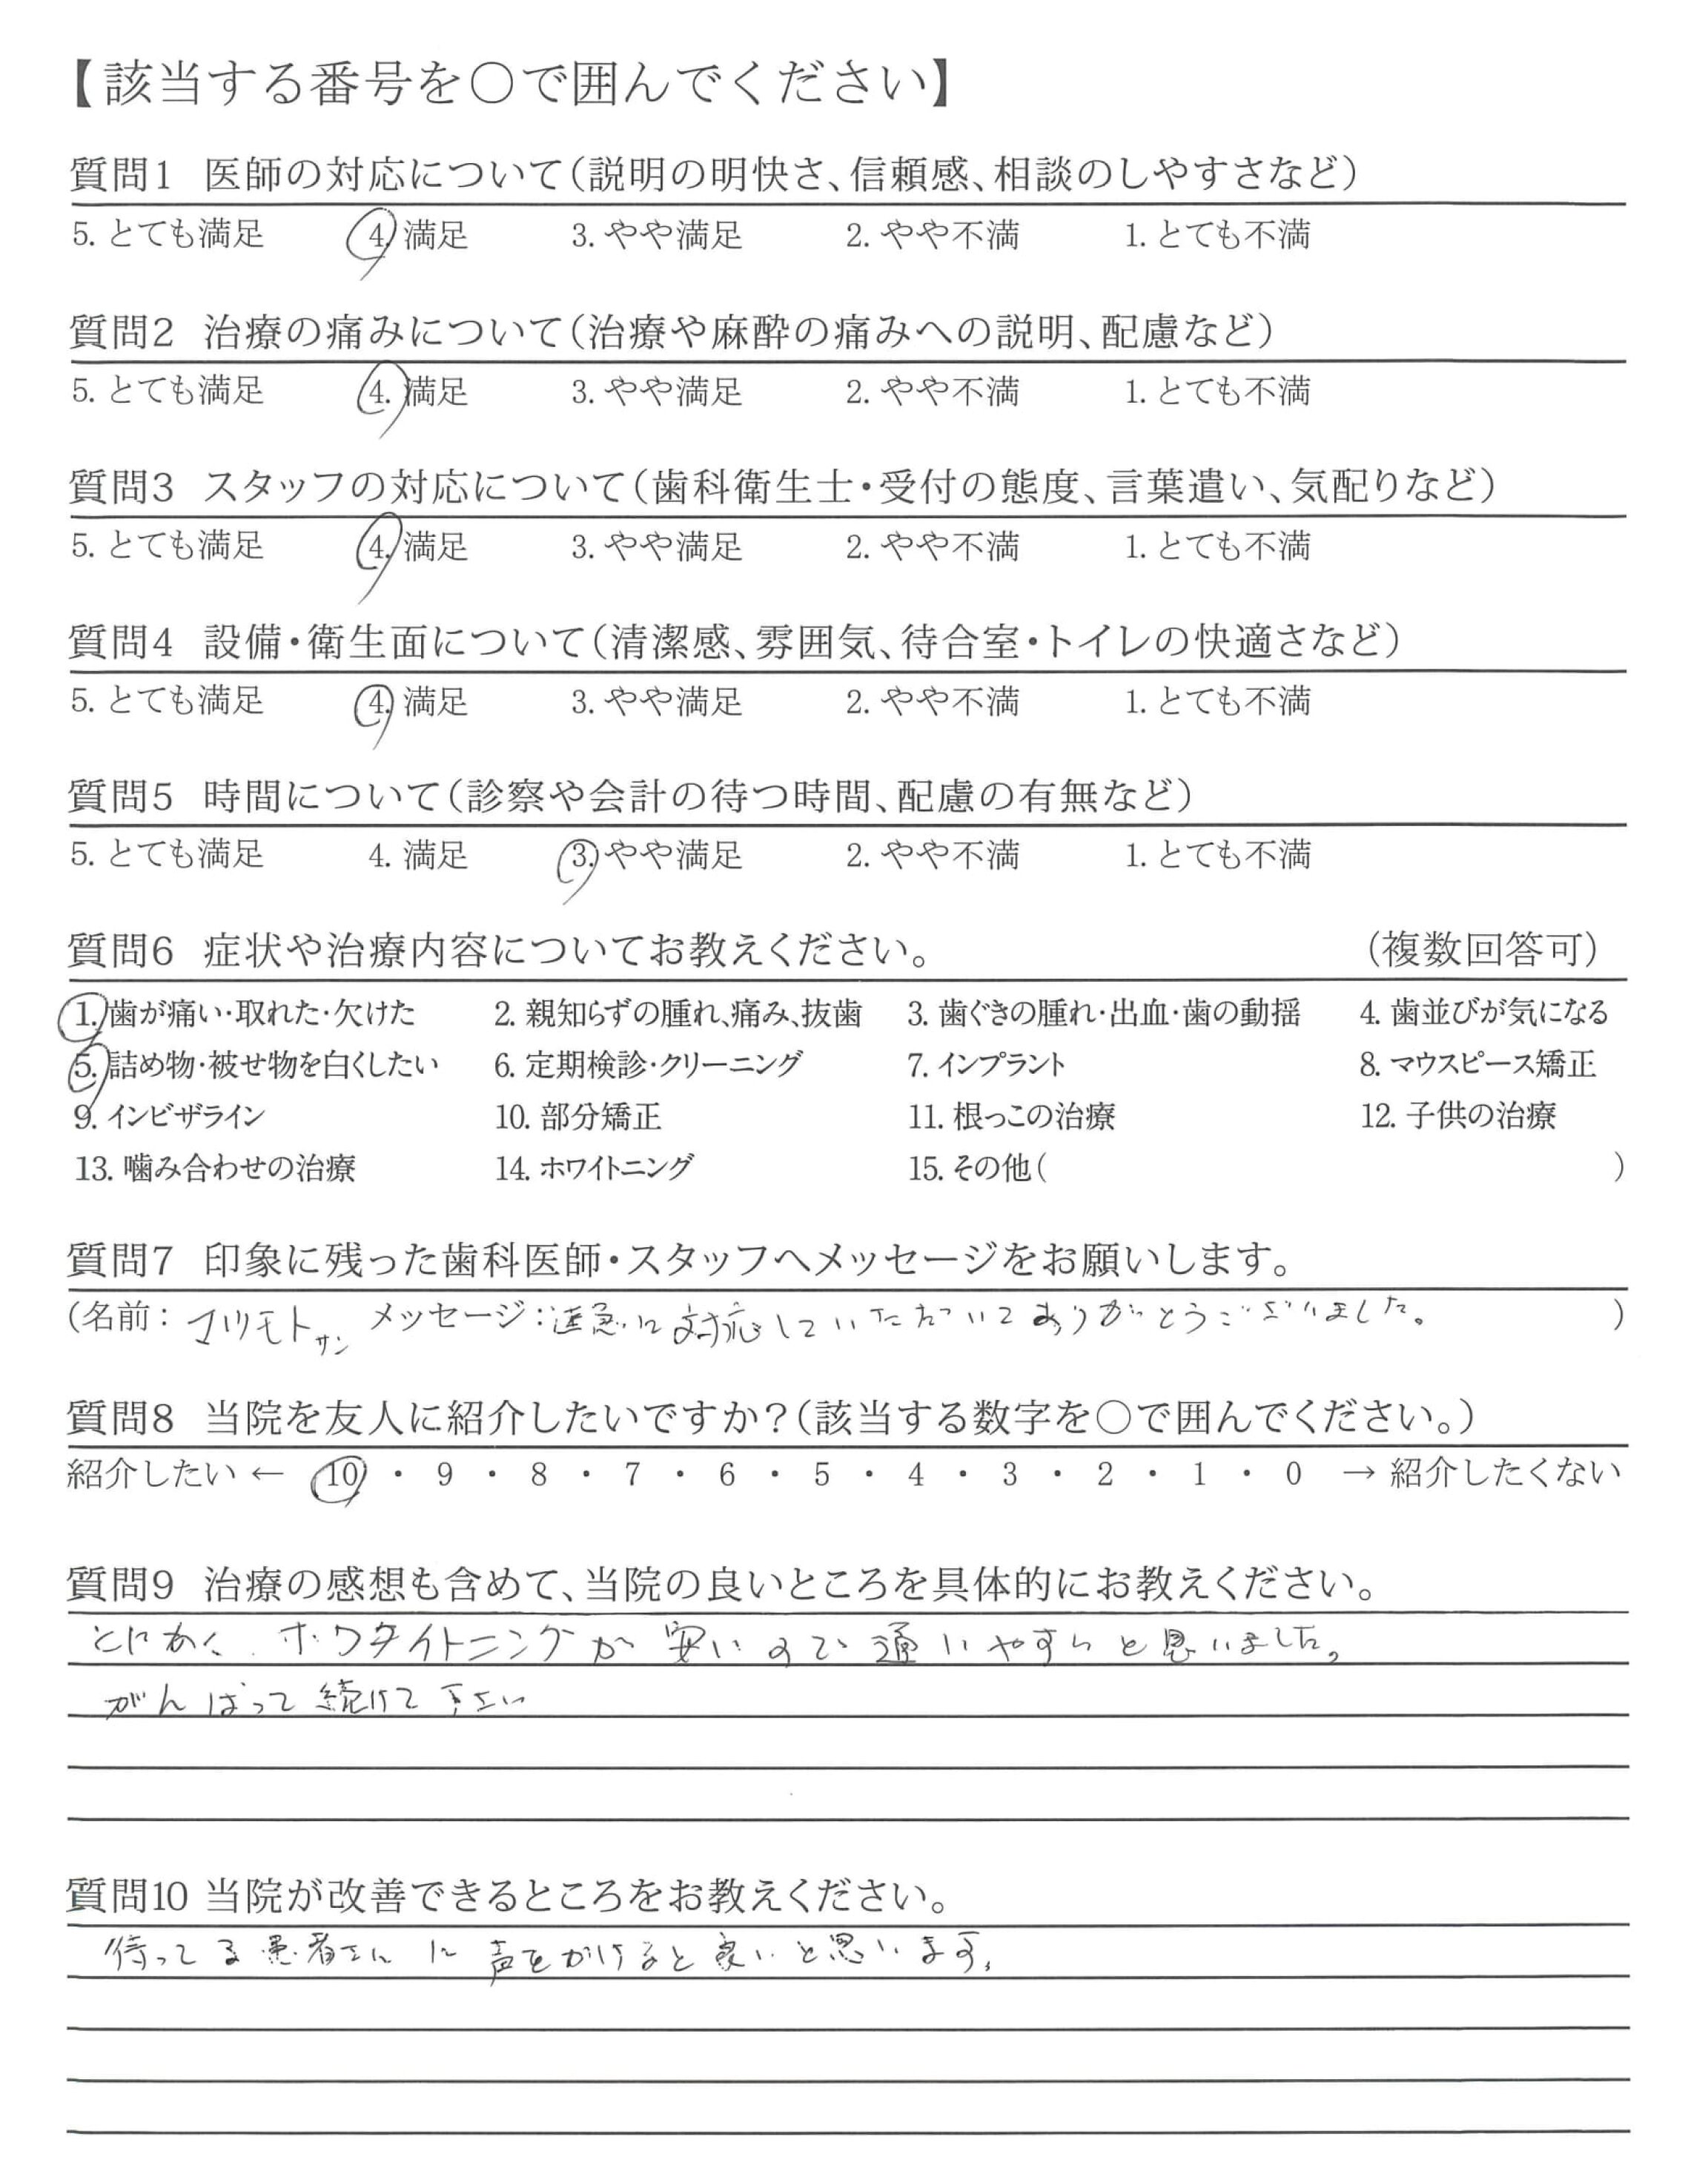 【該当する番号を○で囲んでください】
質問1 医師の対応について(説明の明快さ、信頼感、相談のしやすさなど)
5. とても満足 4. 満足 3. やや満足 2. やや不満 1. とても不満
質問2 治療の痛みについて(治療や麻酔の痛みへの説明、配慮など)
5. とても満足 4. 満足 3. やや満足 2. やや不満 1. とても不満
質問3 スタッフの対応について(歯科衛生士・受付の態度、言葉遣い、気配りなど)
5. とても満足 4. 満足 3. やや満足 2. やや不満 1. とても不満
質問4 設備・衛生面について(清潔感、雰囲気、待合室・トイレの快適さなど)
5. とても満足 4. 満足 3. やや満足 2. やや不満 1. とても不満
質問5 時間について(診察や会計の待つ時間、配慮の有無など)
5. とても満足 4. 満足 3. やや満足 2. やや不満 1. とても不満
質問6 症状や治療内容についてお教えください。 (複数回答可)
1. 歯が痛い・取れた・欠けた 2. 親知らずの腫れ、痛み、抜歯 3. 歯ぐきの腫れ・出血・歯の動揺 4. 歯並びが気になる
5. 詰め物・被せ物を白くしたい 6. 定期検診・クリーニング 7. インプラント 8. マウスピース矯正
9. インビザライン 10. 部分矯正 11. 根っこの治療 12. 子供の治療
13. 噛み合わせの治療 14. ホワイトニング 15. その他( )
質問7 印象に残った歯科医師・スタッフへメッセージをお願いします。
(名前: マツモトサン メッセージ: 早急に対応していただいてありがとうございました。 )
質問8 当院を友人に紹介したいですか?(該当する数字を○で囲んでください。)
紹介したい ← 10 ・ 9 ・ 8 ・ 7 ・ 6 ・ 5 ・ 4 ・ 3 ・ 2 ・ 1 ・ 0 → 紹介したくない
質問9 治療の感想も含めて、当院の良いところを具体的にお教えください。
とにかく、ホワイトニングが安いので通いやすいと思いました。
がんばって続けて下さい
質問10 当院が改善できるところをお教えください。
待ってる患者さんに声をかけると良いと思います。